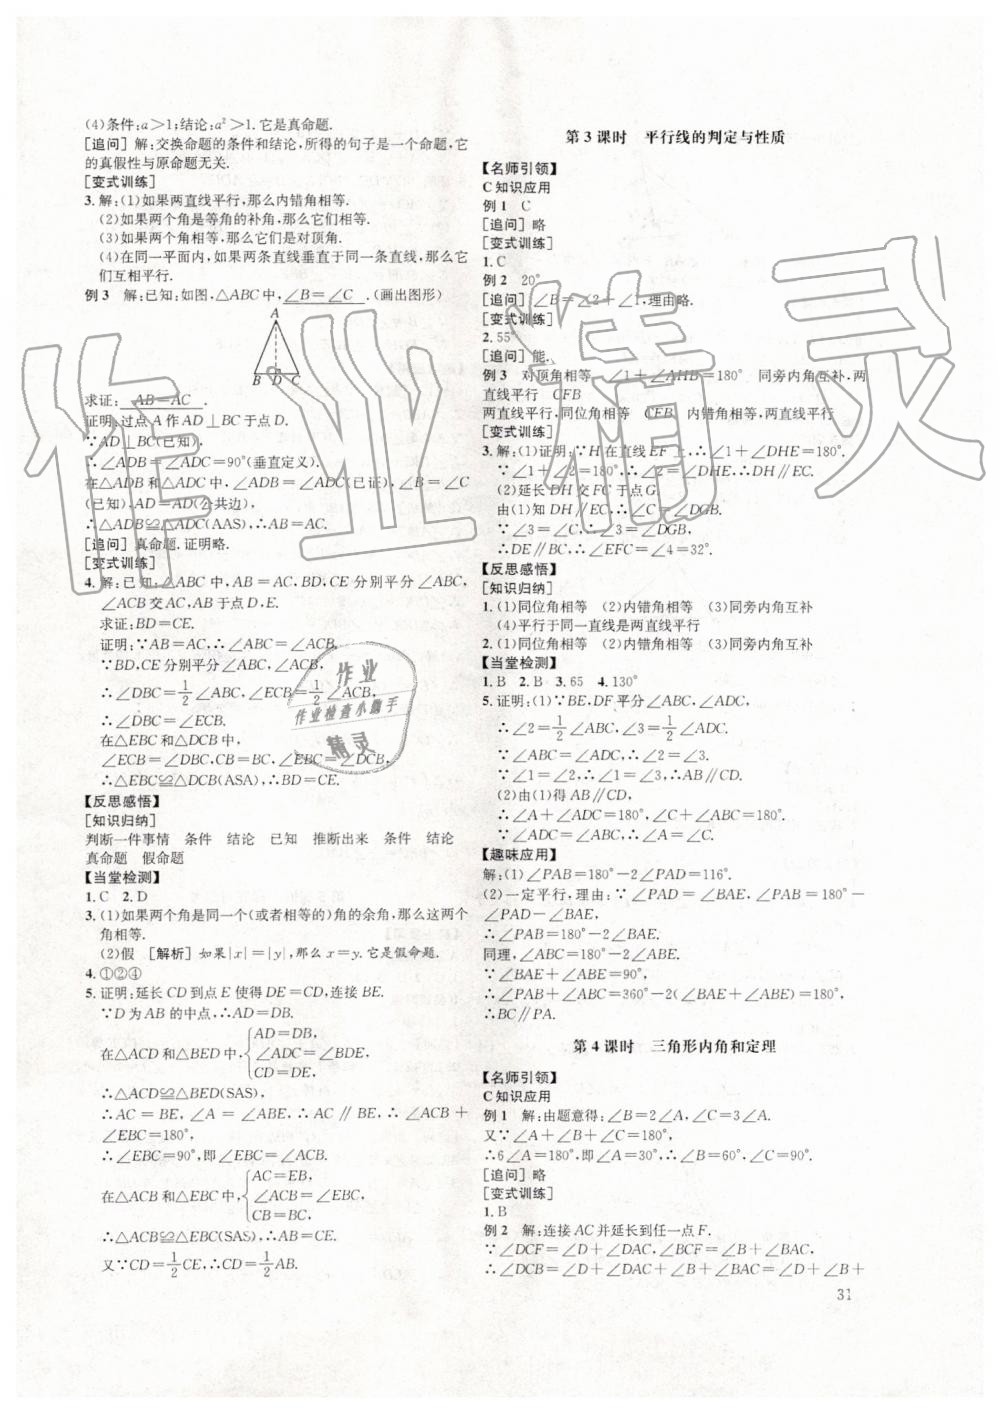 (4)条件:a＞1;结论:a²＞1.它是真命题.
[追问] 解:交换命题的条件和结论,所得的句子是一个命题,它
的真假性与原命题无关.
[变式训练]
3.解:(1)如果两直线平行,那么内错角相等.
(2)如果两个角是等角的补角,那么它们相等.
(3)如果两个角相等,那么它们是对顶角.
(4)在同一平面内,如果两条直线垂直于同一条直线,那么它
们互相平行.
例3 解:已知:如图,△ABC中, ∠B=∠C .(画出图形)
A
B D C
求证: AB=AC .
证明:过点A作AD⊥BC于点D.
∵AD⊥BC(已知),
∴∠ADB=∠ADC=90°(垂直定义).
在△ADB和△ADC中,∠ADB=∠ADC(已证),∠B=∠C
(已知),AD=AD(公共边),
∴△ADB≌△ADC(AAS),∴AB=AC.
[追问] 真命题.证明略.
[变式训练]
4.解:已知:△ABC中,AB=AC,BD,CE分别平分∠ABC,
∠ACB交AC,AB于点D,E.
求证:BD=CE.
证明:∵AB=AC,∴∠ABC=∠ACB.
∵BD,CE分别平分∠ABC,∠ACB,
∴∠DBC=1/2∠ABC,∠ECB=1/2∠ACB,
∴∠DBC=∠ECB.
在△EBC和△DCB中,
∠ECB=∠DBC,CB=BC,∠EBC=∠DCB,
∴△EBC≌△DCB(ASA),∴BD=CE.
【反思感悟】
[知识归纳]
判断一件事情 条件 结论 已知 推断出来 条件 结论
真命题 假命题
【当堂检测】
1.C 2.D
3.(1)如果两个角是同一个(或者相等的)角的余角,那么这两个
角相等.
(2)假 [解析] 如果|x|=|y|,那么x=y.它是假命题.
4.①②④
5.证明:延长CD到点E使得DE=CD,连接BE.
∵D为AB的中点,∴AD=DB.
在△ACD和△BED中,{AD=DB,
∠ADC=∠BDE,
CD=DE,
∴△ACD≌△BED(SAS),
∴AC=BE,∠A=∠ABE,∴AC∥BE,∴∠ACB+
∠EBC=180°,
∴∠EBC=90°,即∠EBC=∠ACB.
在△ACB和△EBC中,{AC=EB,
∠ACB=∠EBC,
CB=BC,
∴△ACB≌△EBC(SAS),∴AB=CE.
又∵CD=1/2CE,∴CD=1/2AB.
第3课时 平行线的判定与性质
【名师引领】
C知识应用
例1 C
[追问] 略
[变式训练]
1.C
例2 20°
[追问] ∠B=∠2+∠1,理由略.
[变式训练]
2.55°
[追问] 能.
例3 对顶角相等 ∠1+∠AHB=180° 同旁内角互补,两
直线平行 CFB
两直线平行,同位角相等 CFB 内错角相等,两直线平行
[变式训练]
3.解:(1)证明:∵H在直线EF上,∴∠1+∠DHE=180°.
∵∠1+∠2=180°,∴∠2=∠DHE,∴DH∥EC.
(2)延长DH交FC于点G.
由(1)知DH∥EC,∴∠C=∠DGB.
∵∠3=∠C,∴∠3=∠DGB,
∴DE∥BC,∴∠EFC=∠4=32°.
【反思感悟】
[知识归纳]
1.(1)同位角相等 (2)内错角相等 (3)同旁内角互补
(4)平行于同一直线是两直线平行
2.(1)同位角相等 (2)内错角相等 (3)同旁内角互补
【当堂检测】
1.B 2.B 3.65 4.130°
5.证明:(1)∵BE,DF平分∠ABC,∠ADC,
∴∠2=1/2∠ABC,∠3=1/2∠ADC.
∵∠ABC=∠ADC,∴∠2=∠3.
∵∠1=∠2,∴∠1=∠3,∴AB∥CD.
(2)由(1)得AB∥CD,
∴∠A+∠ADC=180°,∠C+∠ABC=180°.
∵∠ADC=∠ABC,∴∠A=∠C.
【趣味应用】
解:(1)∠PAB=180°-2∠PAD=116°.
(2)一定平行,理由:∵∠PAD=∠BAE,∠PAB=180°-
∠PAD-∠BAE,
∴∠PAB=180°-2∠BAE.
同理,∠ABC=180°-2∠ABE.
∵∠BAE+∠ABE=90°,
∴∠PAB+∠ABC=360°-2(∠BAE+∠ABE)=180°,
∴BC∥PA.
第4课时 三角形内角和定理
【名师引领】
C知识应用
例1 解:由题意得:∠B=2∠A,∠C=3∠A.
又∵∠A+∠B+∠C=180°,
∴6∠A=180°,即∠A=30°,∴∠B=60°,∠C=90°.
[追问] 略
[变式训练]
1.B
例2 解:连接AC并延长到任一点F.
∵∠DCF=∠D+∠DAC,∠BCF=∠B+∠BAC,
∴∠DCB=∠D+∠DAC+∠B+∠BAC=∠D+∠B+
31
作业精灵
作业
作业检查小助手
精灵